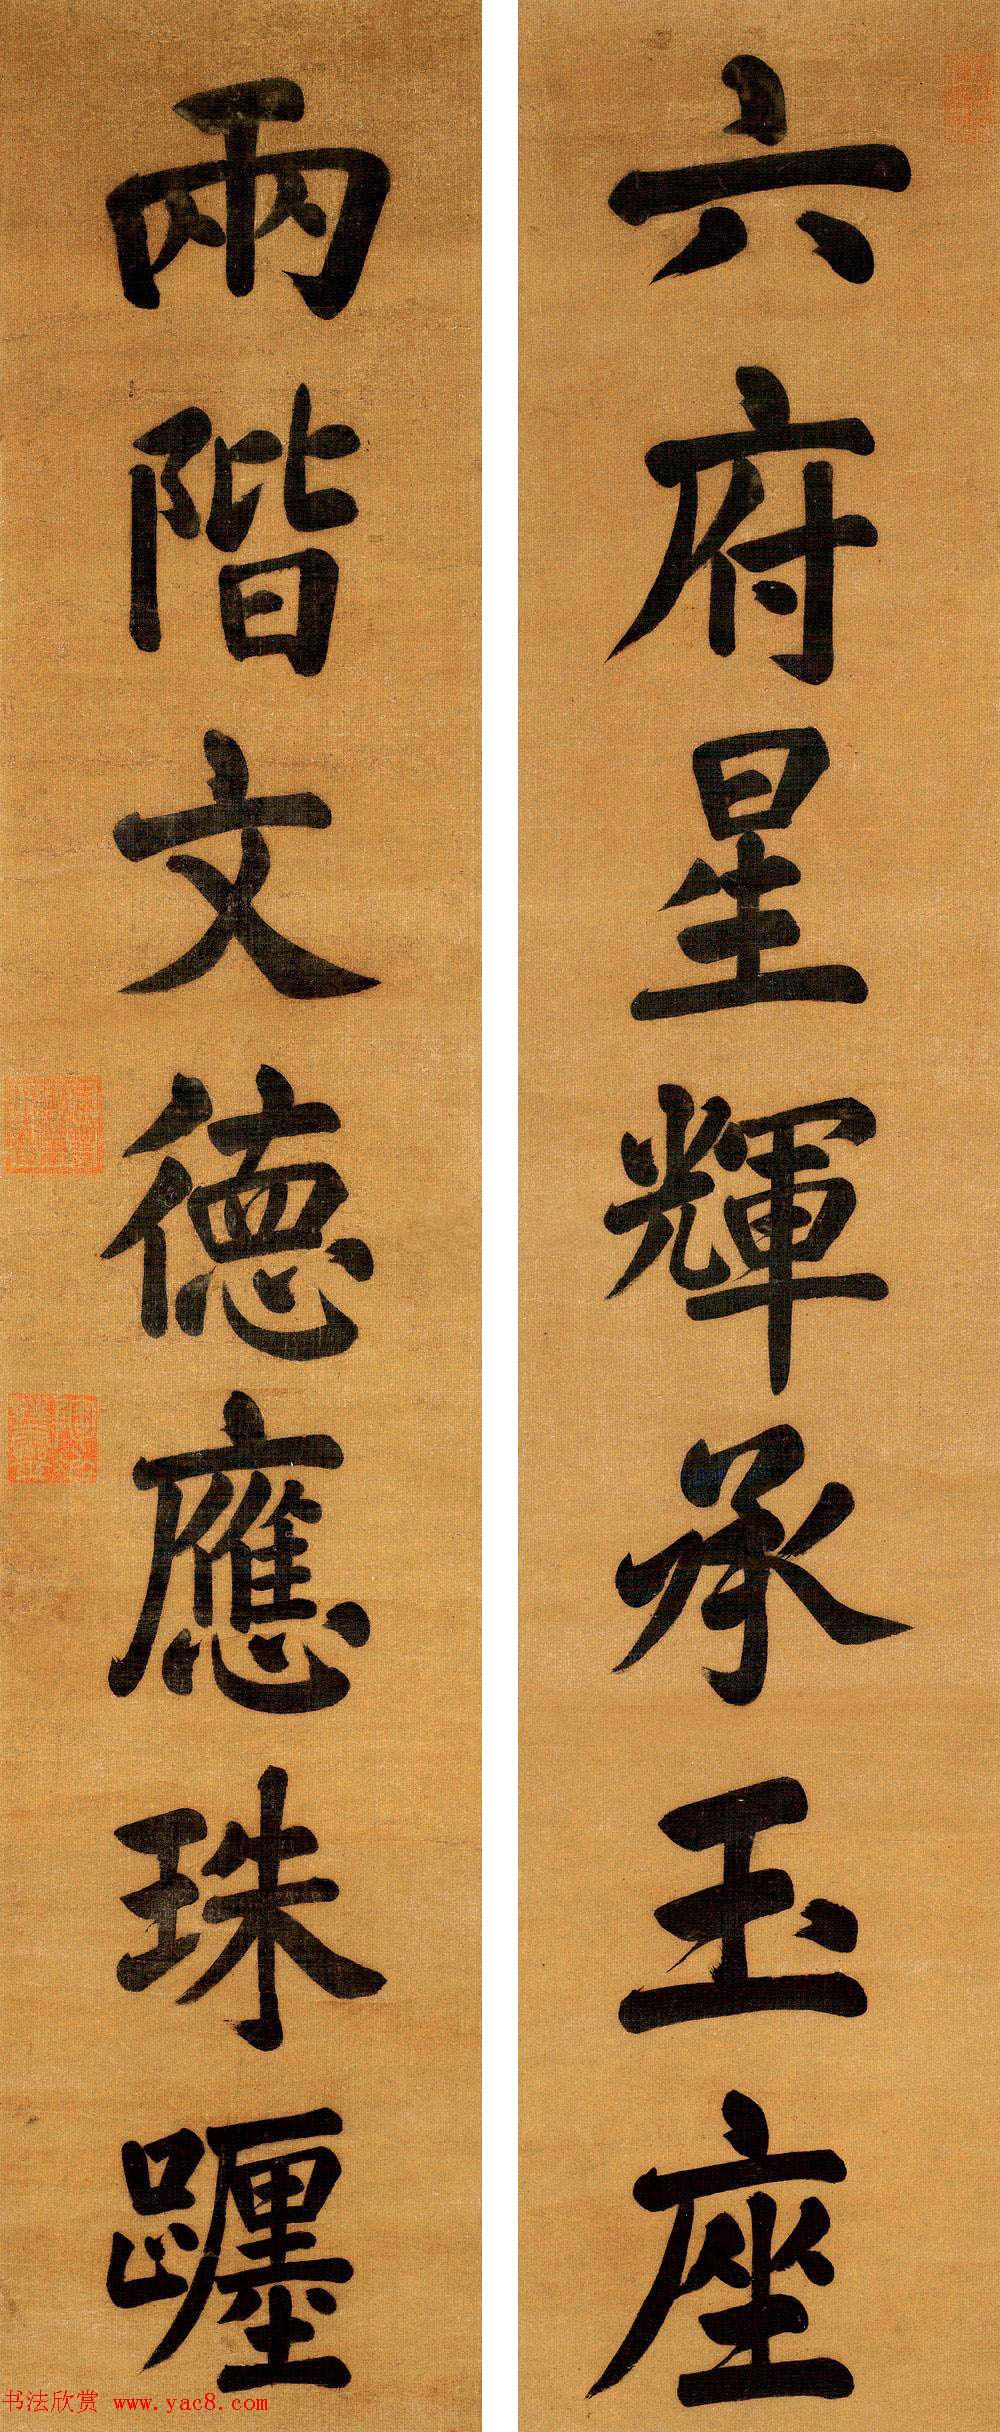 六府星輝承玉座
兩階文德應珠躔
书法欣赏 www.yac8.com